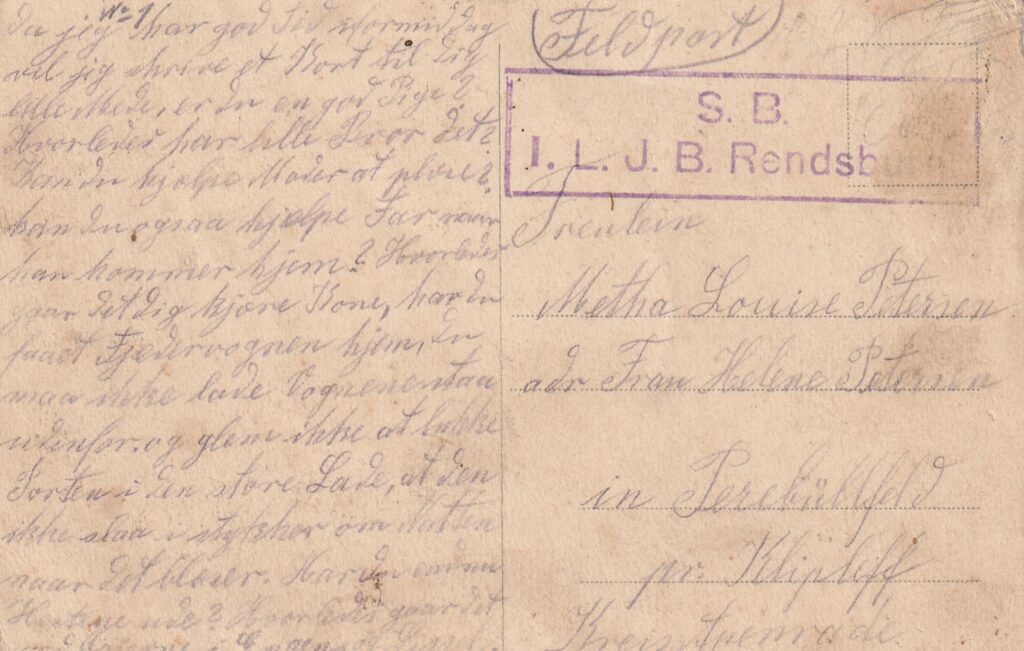 No 1
da jeg har god Tid iformiddag
vil jeg skrive et Kort til Dig
lille Mede, er du en god Pige?
Hvorledes har lille Bror det?
Kan du hjelpe Moder at pløie?
kan du ogsaa hjelpe Far naar
han kommer hjem? Hvorledes
gaar det dig kjære Kone, har du
faaet Fjedervognen hjem, du
maa ikke lade Vognene staa
udenfor. og glem ikke at lukke
Porten i den store Lade, at den
ikke slaa i stykker om Natten
naar det blæser. Har du endnu
Hestene ude? Hvorledes gaar det
Feldpost
S. B.
I. L. J. B. Rendsburg
Freulein
Metha Louise Petersen
adr Frau Helene Petersen
in Perebüllfeld
pr. Klipleff
Kreis Apenrade